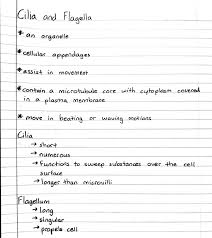 Cilia and Flagella
* an organelle
* cellular appendages
* assist in movement
* contain a microtubule core with cytoplasm covered
in a plasma membrane
* move in beating or waving motions
Cilia
→ short
→ numerous
→ functions to sweep substances over the cell
surface
→ longer than microvilli
Flagellum
→ long
→ singular
→ propels cell